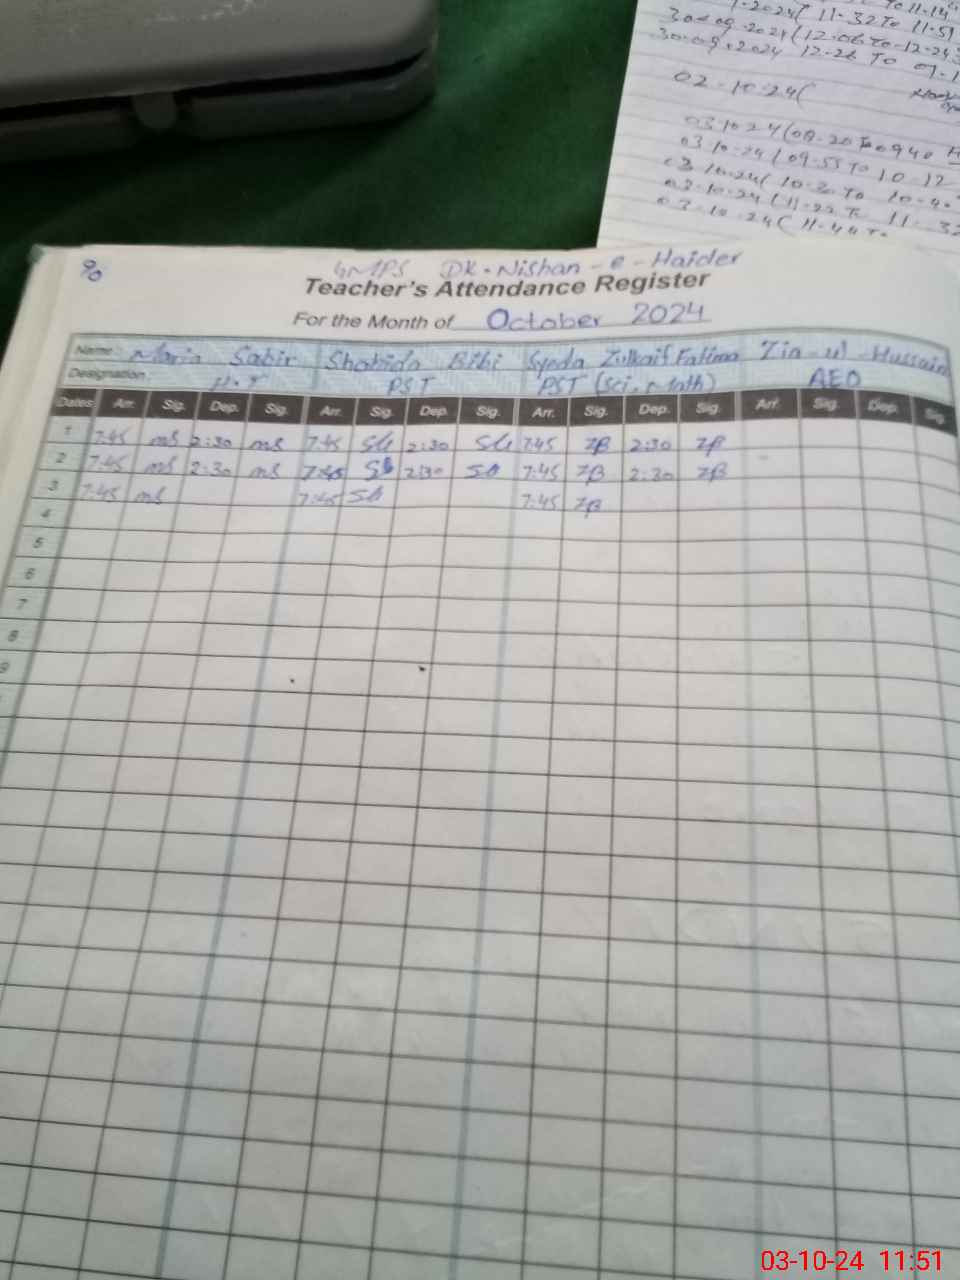 -2024( 11-32 To 11-51
30-09-2024(12-06 To-12-24
30-09-2024 12-26 To
02-10-24(
03-10-24(08-20 To 0940
03-10-24(09-55 To 10-12
03-10-24(10-30 To 10-40
03-10-24(11-22 To 11-32
03-10-24( 11-44 To
%
GMPS DK-Nishan-e-Haider
Teacher's Attendance Register
For the Month of October 2024
Name: Maria Sabir Shahida Bibi Syeda Zulkaif Fatima Zia-ul-Hussain
Designation: H.T PST PST (Sci-Math) AEO
Dates Arr. Sig. Dep. Sig. Arr. Sig. Dep. Sig. Arr. Sig. Dep. Sig. Arr. Sig. Dep. Sig.
1 7:45 ms 2:30 ms 7:45 2:30 7:45 2:30
2 7:45 ms 2:30 ms 7:45 2:30 7:45 2:30
3 7:45 ms 7:45 7:45
4
5
6
7
8
9
03-10-24 11:51